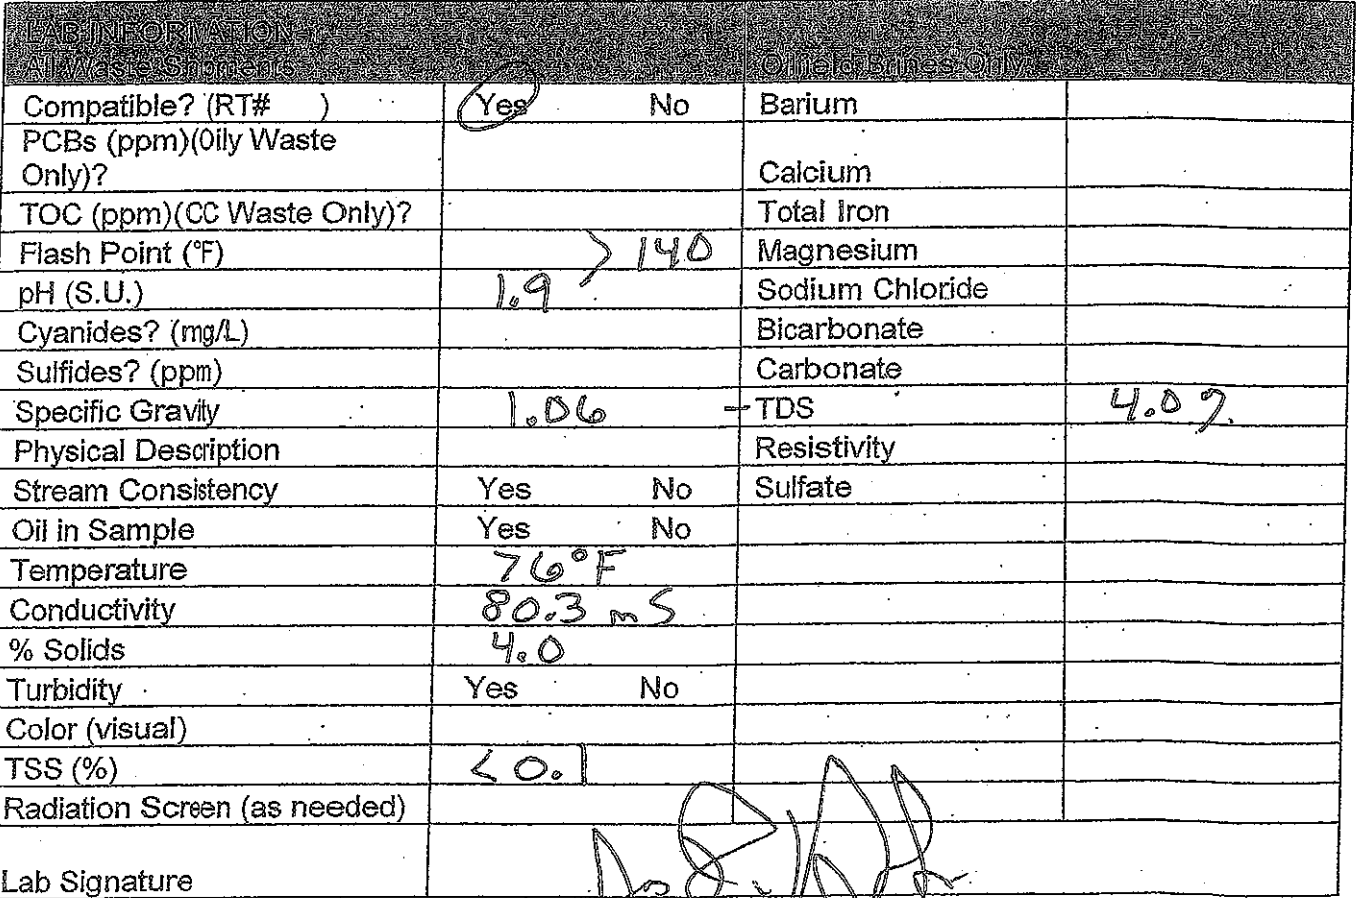 LAB INFORMATION
All Waste Shipments Oilfield Brines Only
Compatible? (RT# ) Yes No Barium
PCBs (ppm)(Oily Waste
Only)? Calcium
TOC (ppm)(CC Waste Only)? Total Iron
Flash Point (°F) > 140 Magnesium
pH (S.U.) 1.9 Sodium Chloride
Cyanides? (mg/L) Bicarbonate
Sulfides? (ppm) Carbonate
Specific Gravity 1.06 - TDS 4.0%
Physical Description Resistivity
Stream Consistency Yes No Sulfate
Oil in Sample Yes No
Temperature 76°F
Conductivity 80.3 mS
% Solids 4.0
Turbidity Yes No
Color (visual)
TSS (%) < 0.1
Radiation Screen (as needed)
Lab Signature